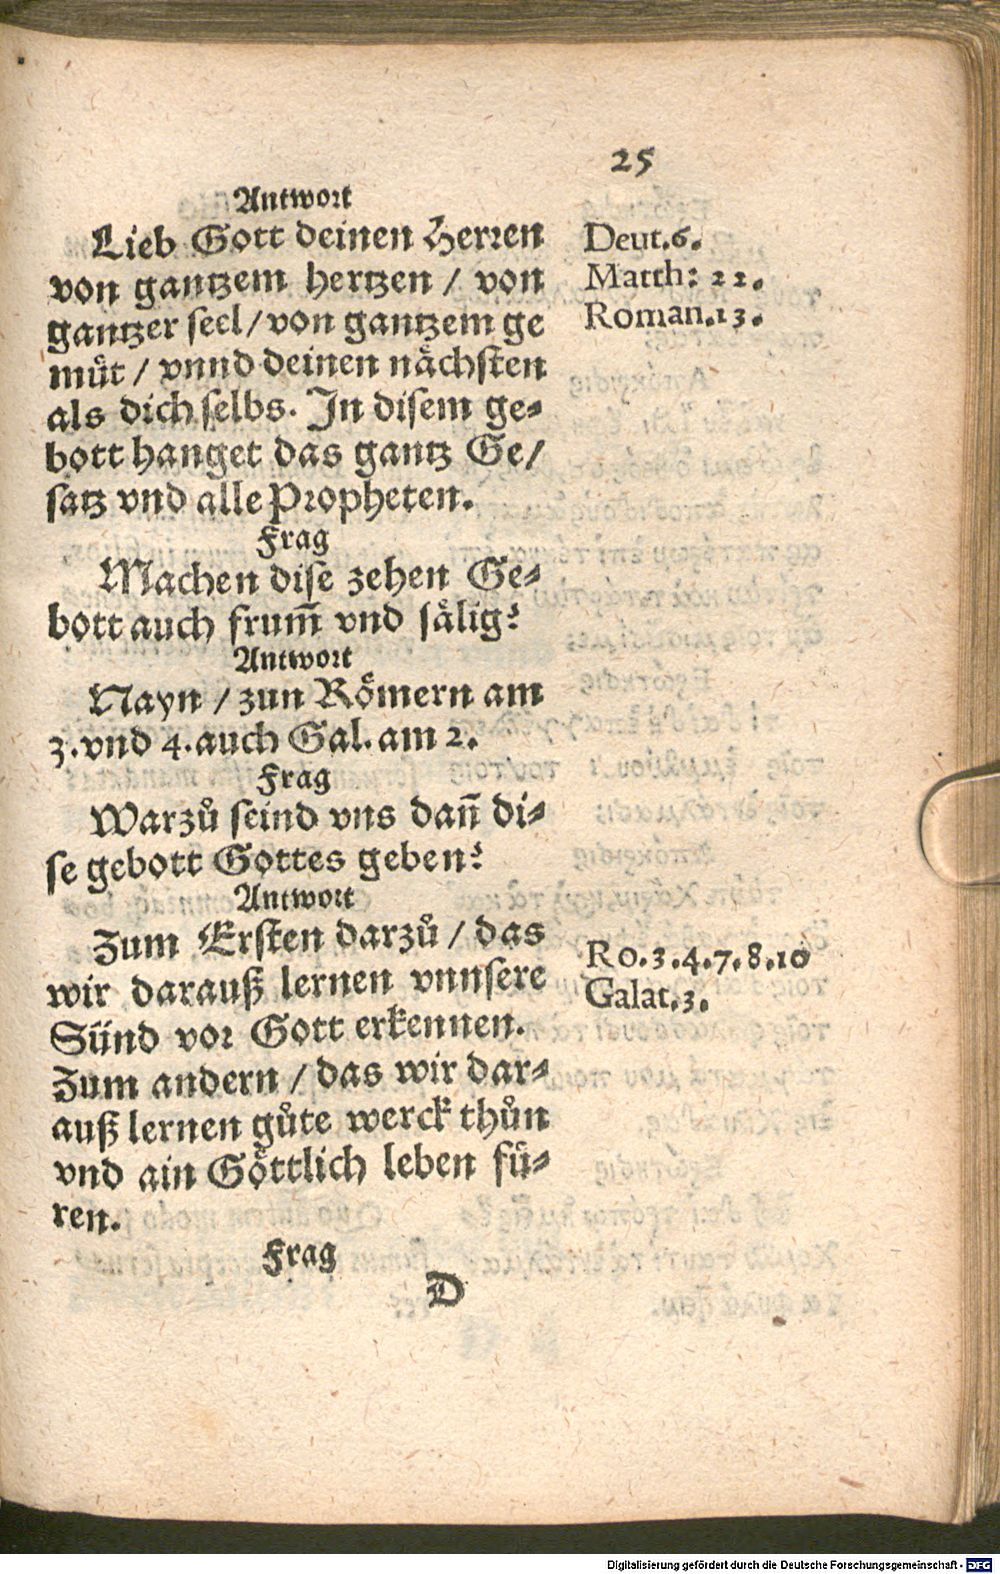 25
Antwort
Lieb Gott deinen Herren
von gantzem hertzen / von
gantzer seel / von gantzem ge
muͤt / vnnd deinen naͤchsten
als dich selbs. In disem ge-
bott hanget das gantz Ge/
satz vnd alle Propheten.
Deut.6.
Matth: 22.
Roman.13.
Frag
Machen dise zehen Ge-
bott auch frum̃ vnd saͤlig?
Antwort
Nayn / zun Roͤmern am
3. vnd 4. auch Gal. am 2.
Frag
Warzuͦ seind vns dañ di-
se gebott Gottes geben?
Antwort
Zum Ersten darzuͦ / das
wir darauß lernen vnnsere
Sünd vor Gott erkennen.
Zum andern / das wir dar-
auß lernen guͦte werck thuͦn
vnd ain Goͤttlich leben fuͤ-
ren.
Ro.3.4.7.8.10
Galat.3.
Frag
D
Digitalisierung gefördert durch die Deutsche Forschungsgemeinschaft - DFG